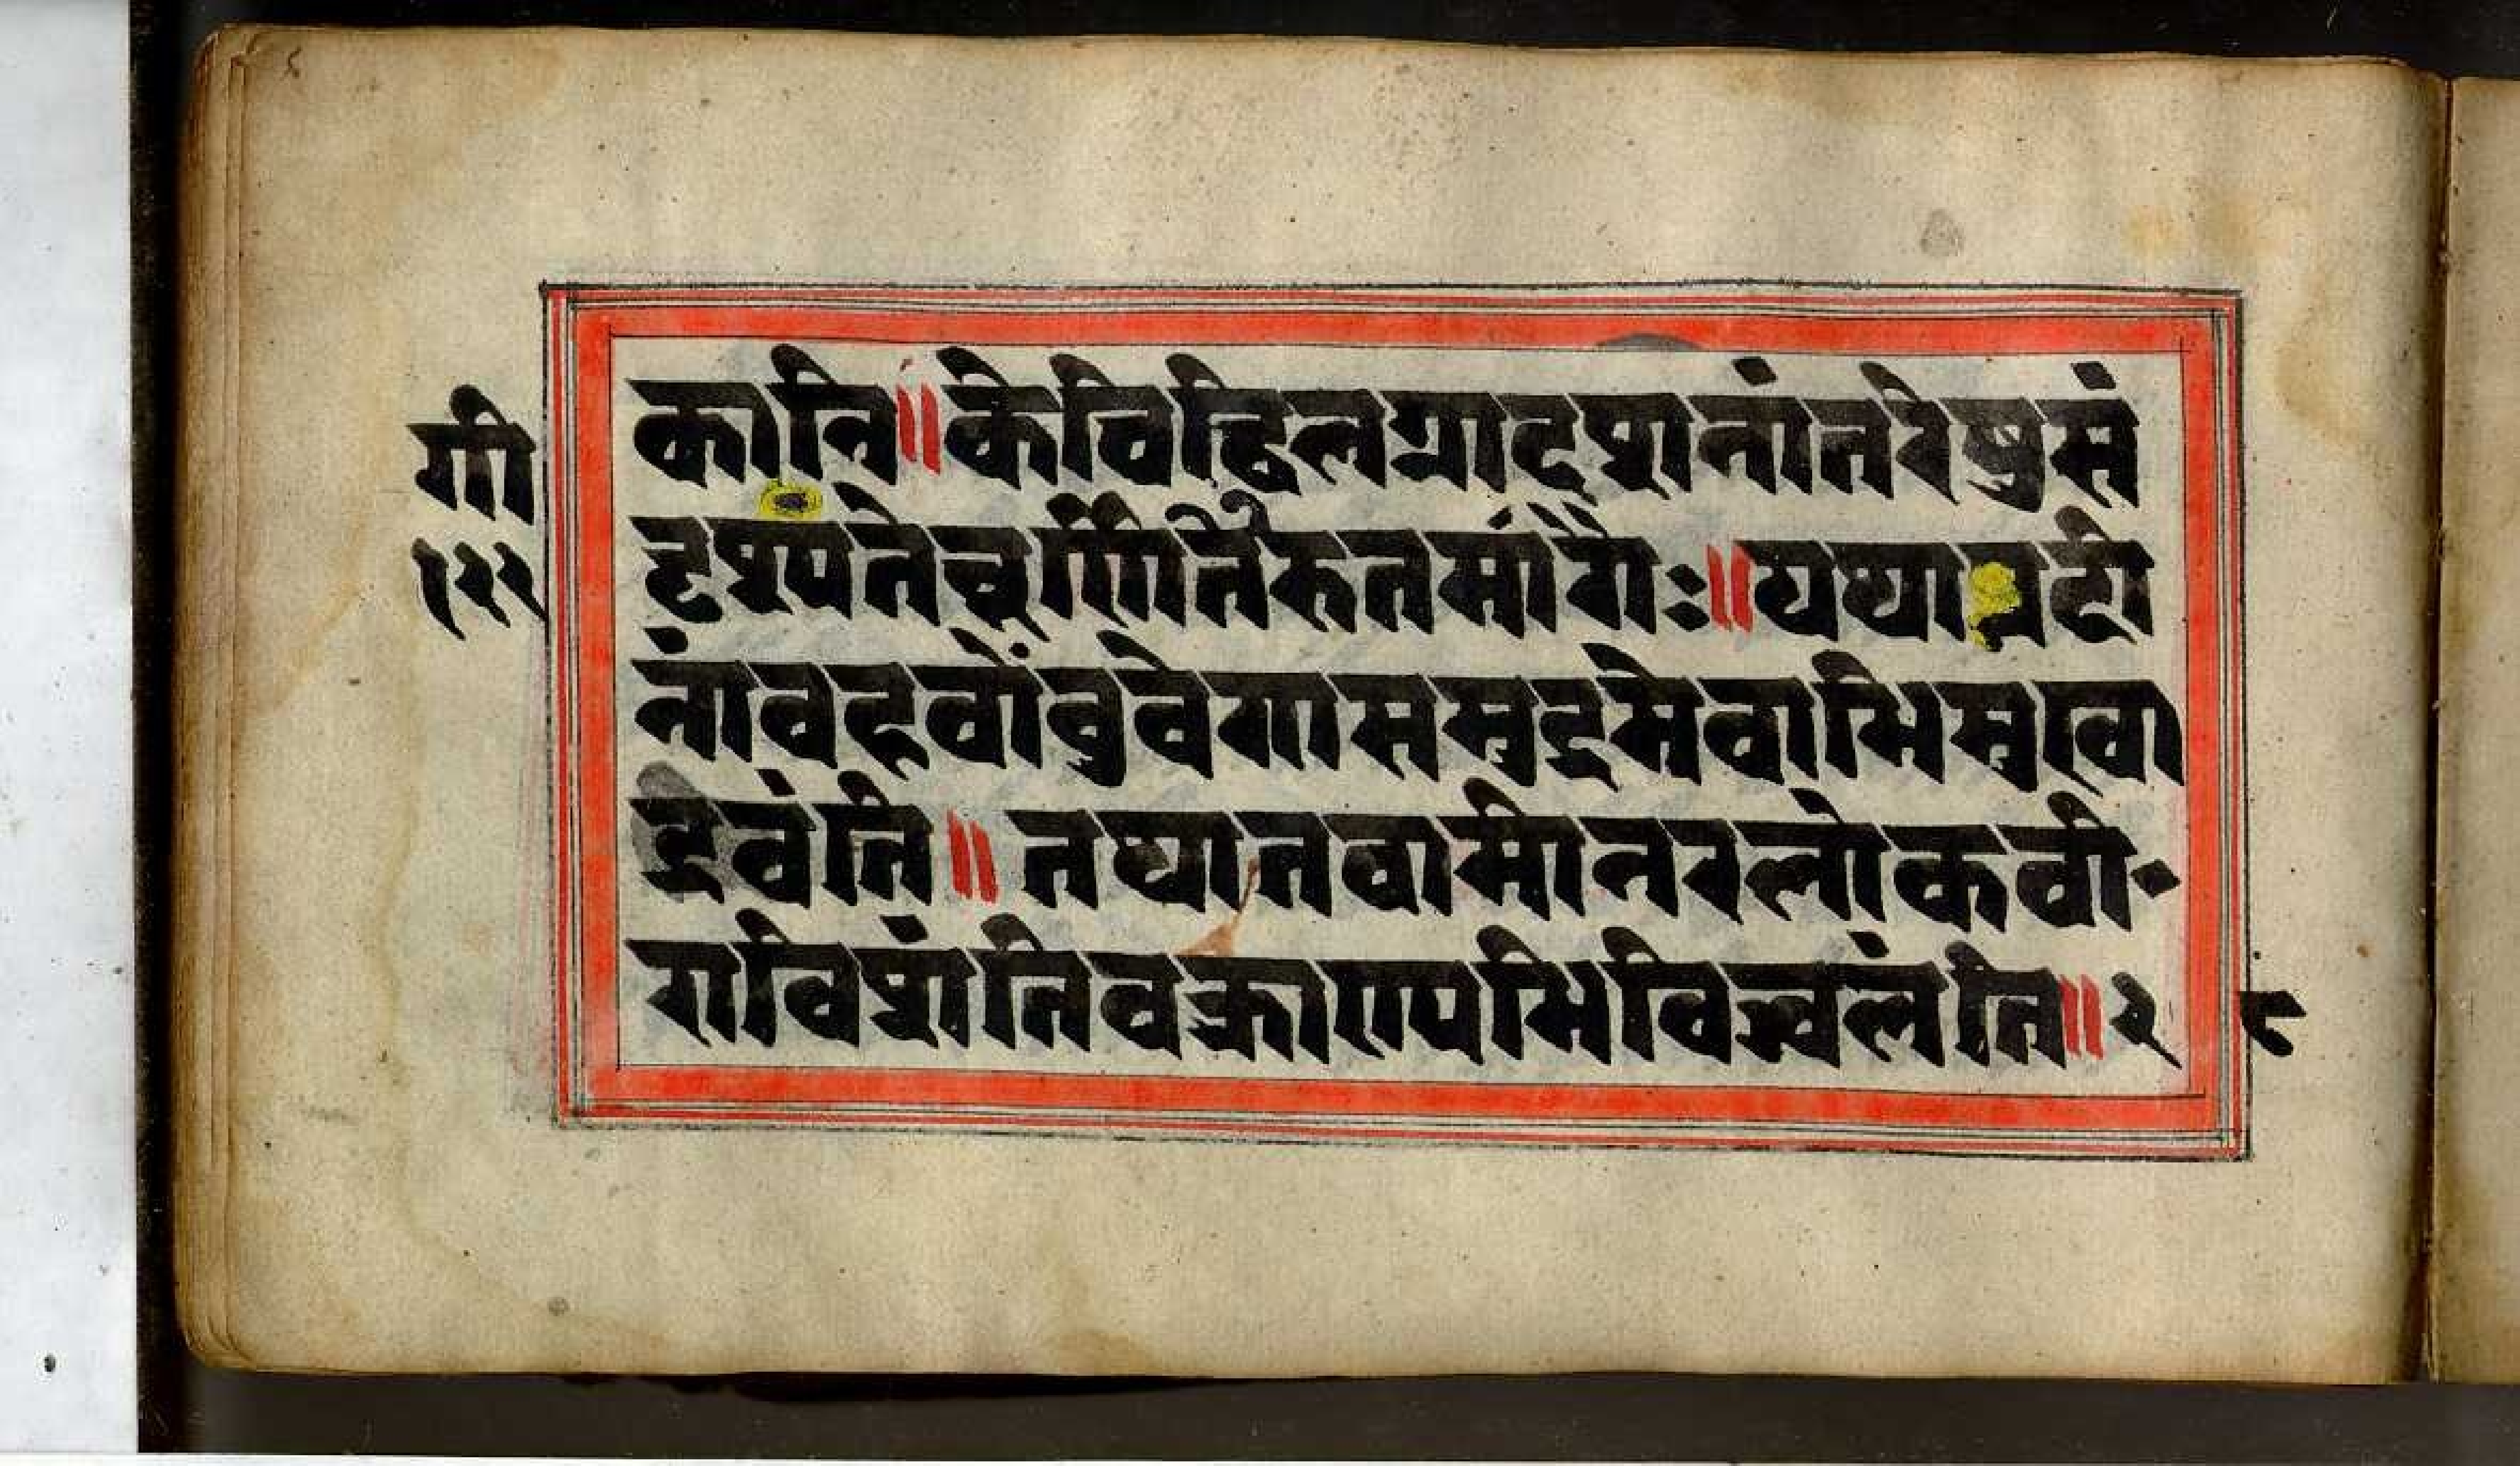 कानि॥केचिद्विलग्नादशनांतरेषुसं
गी
दृश्यतेचूर्णितैरुतमांगैः॥यथानदी
१२२
नांवहवोंवुवेगासमुद्रमेवाभिमुखा
द्रवंति॥तथातवामीनरलोकवी-
राविशंतिवक्राण्यभिविज्वलंति॥२
८